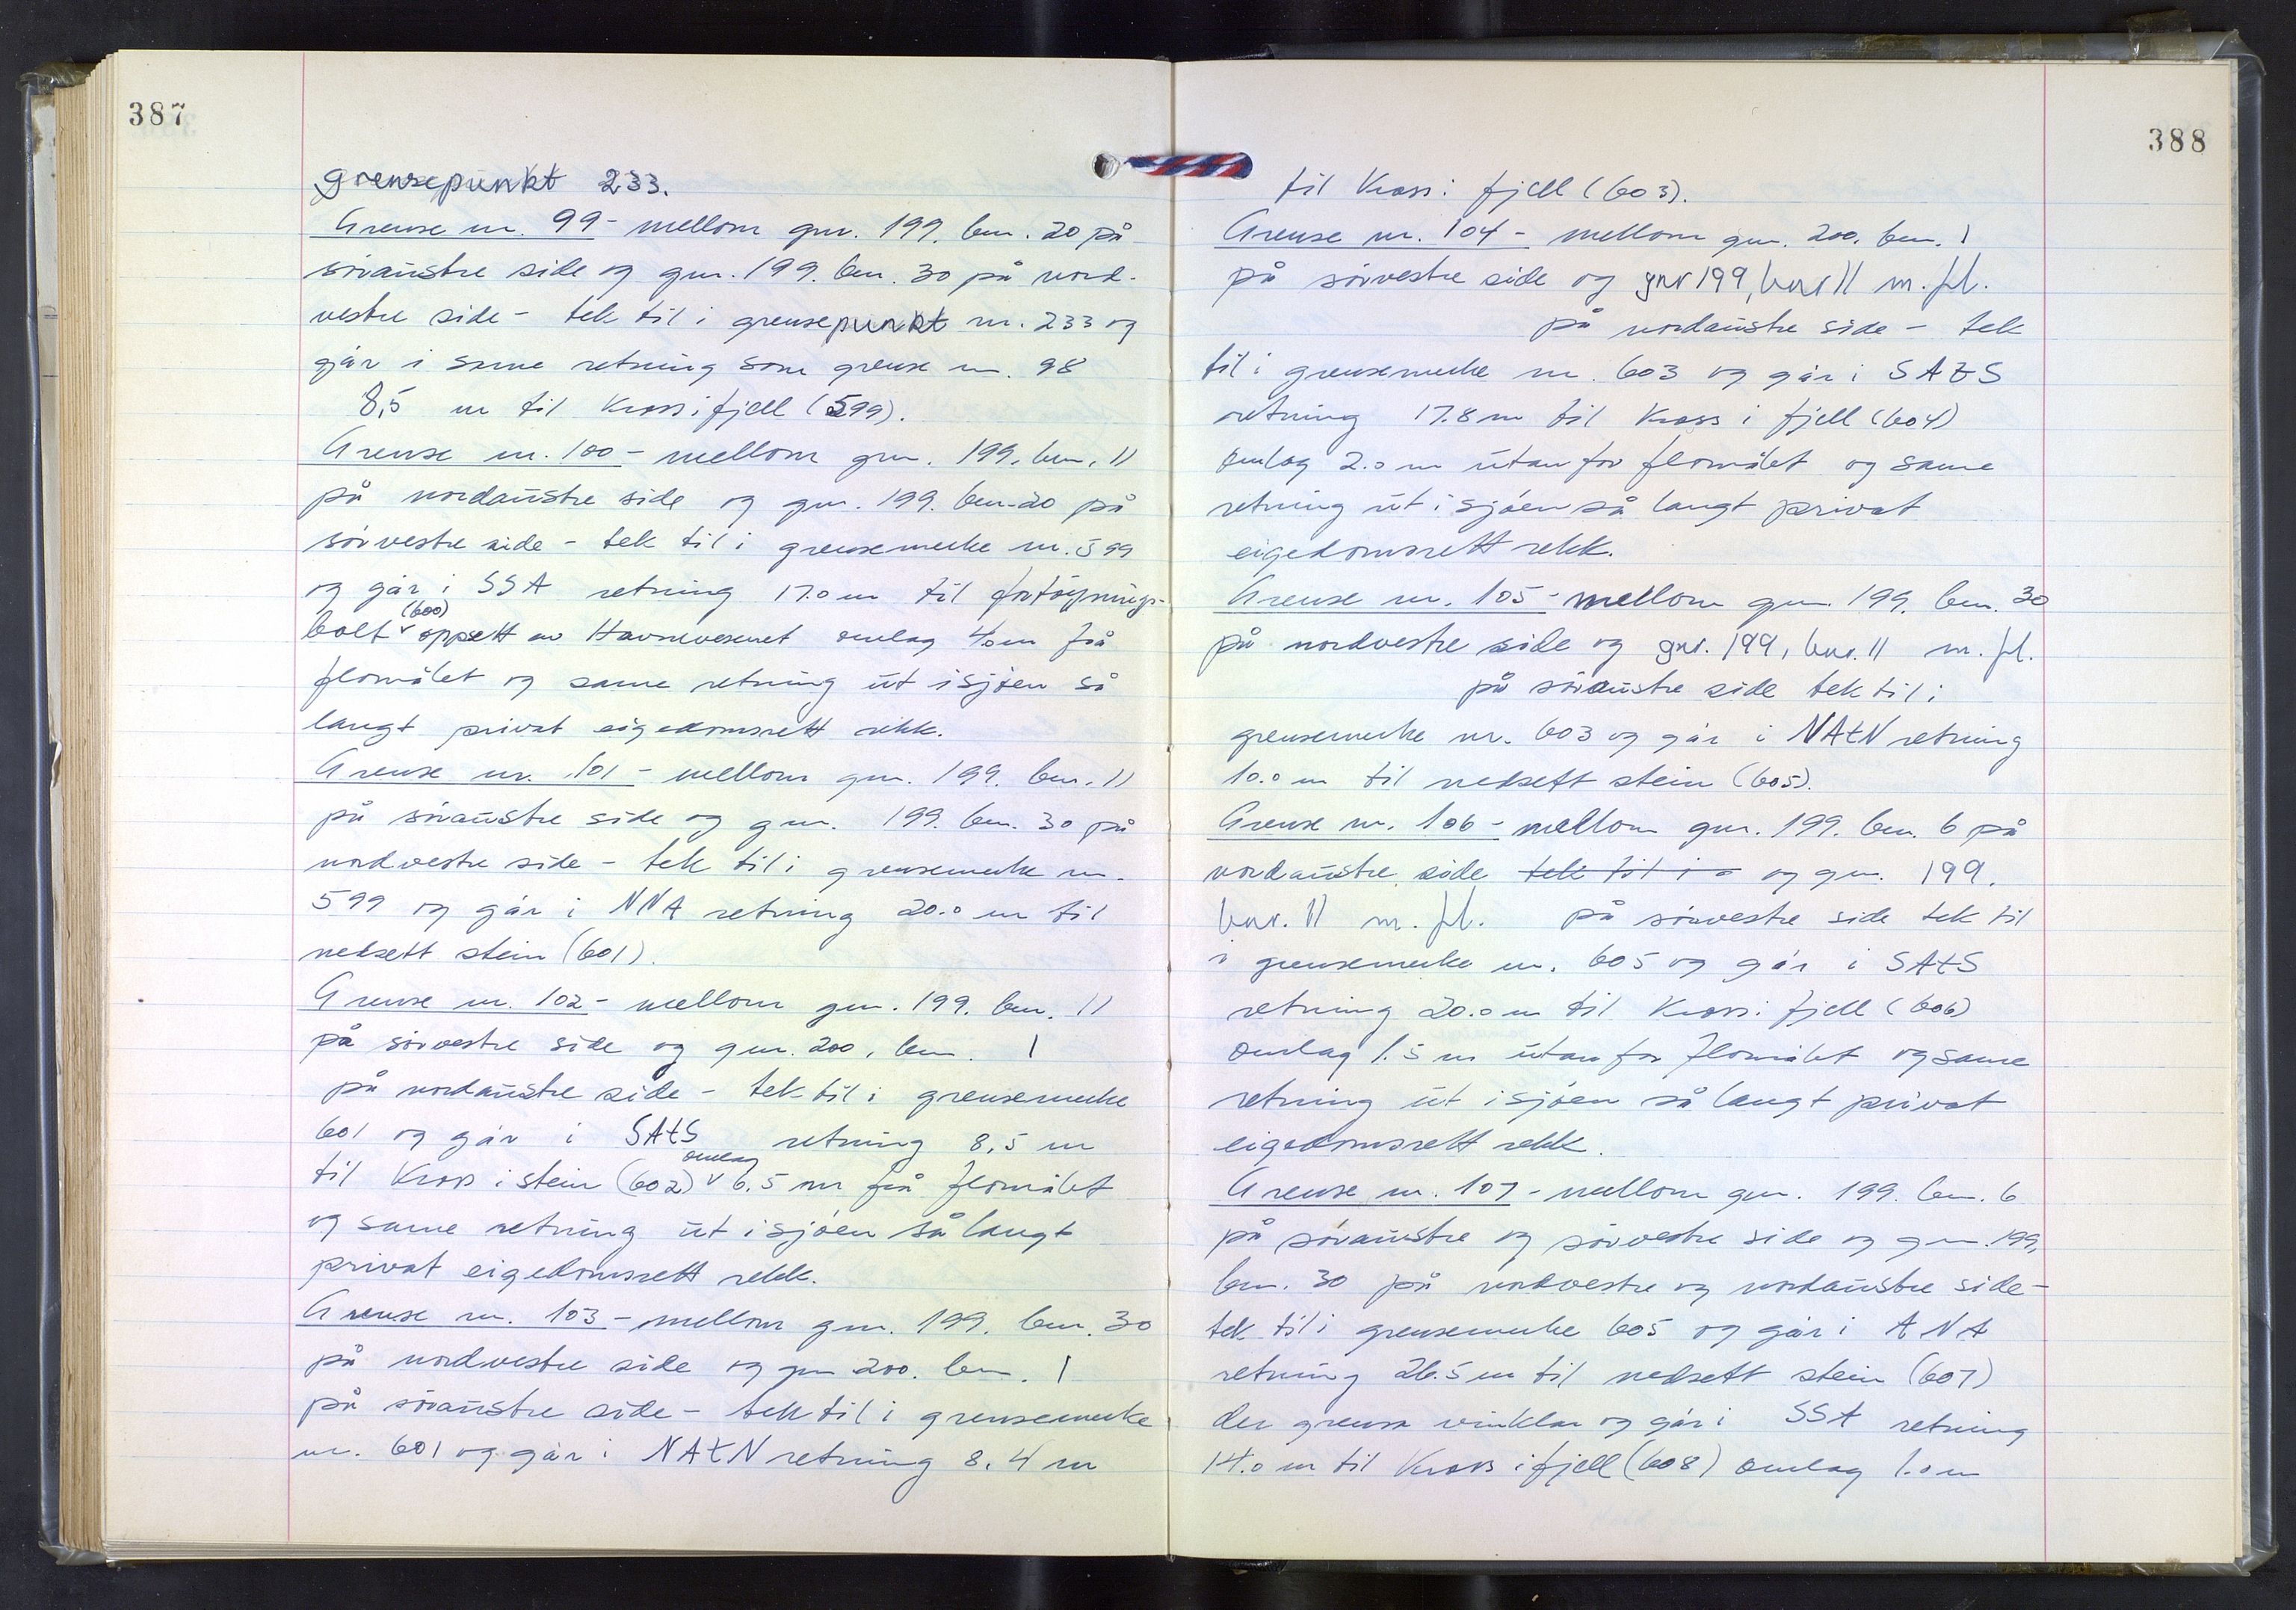 387
grensepunkt 233.
Grense nr. 99 - mellom gnr. 199. bnr. 20 på
søraustre side og gnr. 199. bnr. 30 på nord-
vestre side - tek til i grensepunkt nr. 233 og
går i same retning som grense nr. 98
8,5 m til kross i fjell (599).
Grense nr. 100 - mellom gnr. 199. bnr. 11
på nordaustre side og gnr. 199. bnr. 20 på
sørvestre side - tek til i grensemerke nr. 599
og går i SSA retning 17.0 m til fortøynings-
(600)
bolt v oppsett av Havnevesenet omlag 4.0 m frå
flomålet og same retning ut i sjøen så
langt privat eigedomsrett rekk.
Grense nr. 101 - mellom gnr. 199. bnr. 11
på søraustre side og gnr. 199. bnr. 30 på
nordvestre side - tek til i grensemerke nr.
599 og går i NNA retning 20.0 m til
nedsett stein (601).
Grense nr. 102 - mellom gnr. 199. bnr. 11
på sørvestre side og gnr. 200, bnr. 1
på nordaustre side - tek til i grensemerke
601 og går i SAtS retning 8,5 m
omlag
til Kross i stein (602) v 6.5 m frå flomålet
og same retning ut i sjøen så langt
privat eigedomsrett rekk.
Grense nr. 103 - mellom gnr. 199. bnr. 30
på nordvestre side og gnr 200. bnr. 1
på søraustre side - tek til i grensemerke
nr. 601 og går i NAtN retning 8.4 m
388
til Kross i fjell (603).
Grense nr. 104 - mellom gnr. 200. bnr. 1
på sørvestre side og gnr 199, bnr 11 m.fl.
på nordaustre side - tek
til i grensemerke nr. 603 og går i SAtS
retning 17.8 m til Kross i fjell (604)
omlag 2.0 m utanfor flomålet og same
retning ut i sjøen så langt privat
eigedomsrett rekk.
Grense nr. 105 - mellom gnr. 199. bnr. 30
på nordvestre side og gnr. 199, bnr. 11 m.fl.
på søraustre side tek til i
grensemerke nr. 603 og går i NAtN retning
10.0 m til nedsett stein (605).
Grense nr. 106 - mellom gnr. 199. bnr. 6 på
nordaustre side tek til i - og gnr. 199.
bnr. 11 m.fl. på sørvestre side tek til
i grensemerke nr. 605 og går i SAtS
retning 20.0 m til Kross i fjell (606)
omlag 1.5 m utanfor flomålet og same
retning ut i sjøen så langt privat
eigedomsrett rekk.
Grense nr. 107 - mellom gnr. 199. bnr. 6
på søraustre og sørvestre side og gnr. 199,
bnr. 30 på nordvestre og nordaustre side -
tek til i grensemerke 605 og går i ANA
retning 26.5 m til nedsett stein (607)
der grensa vinklar og går i SSA retning
14.0 m til Kross i fjell (608) omlag 1.0 m